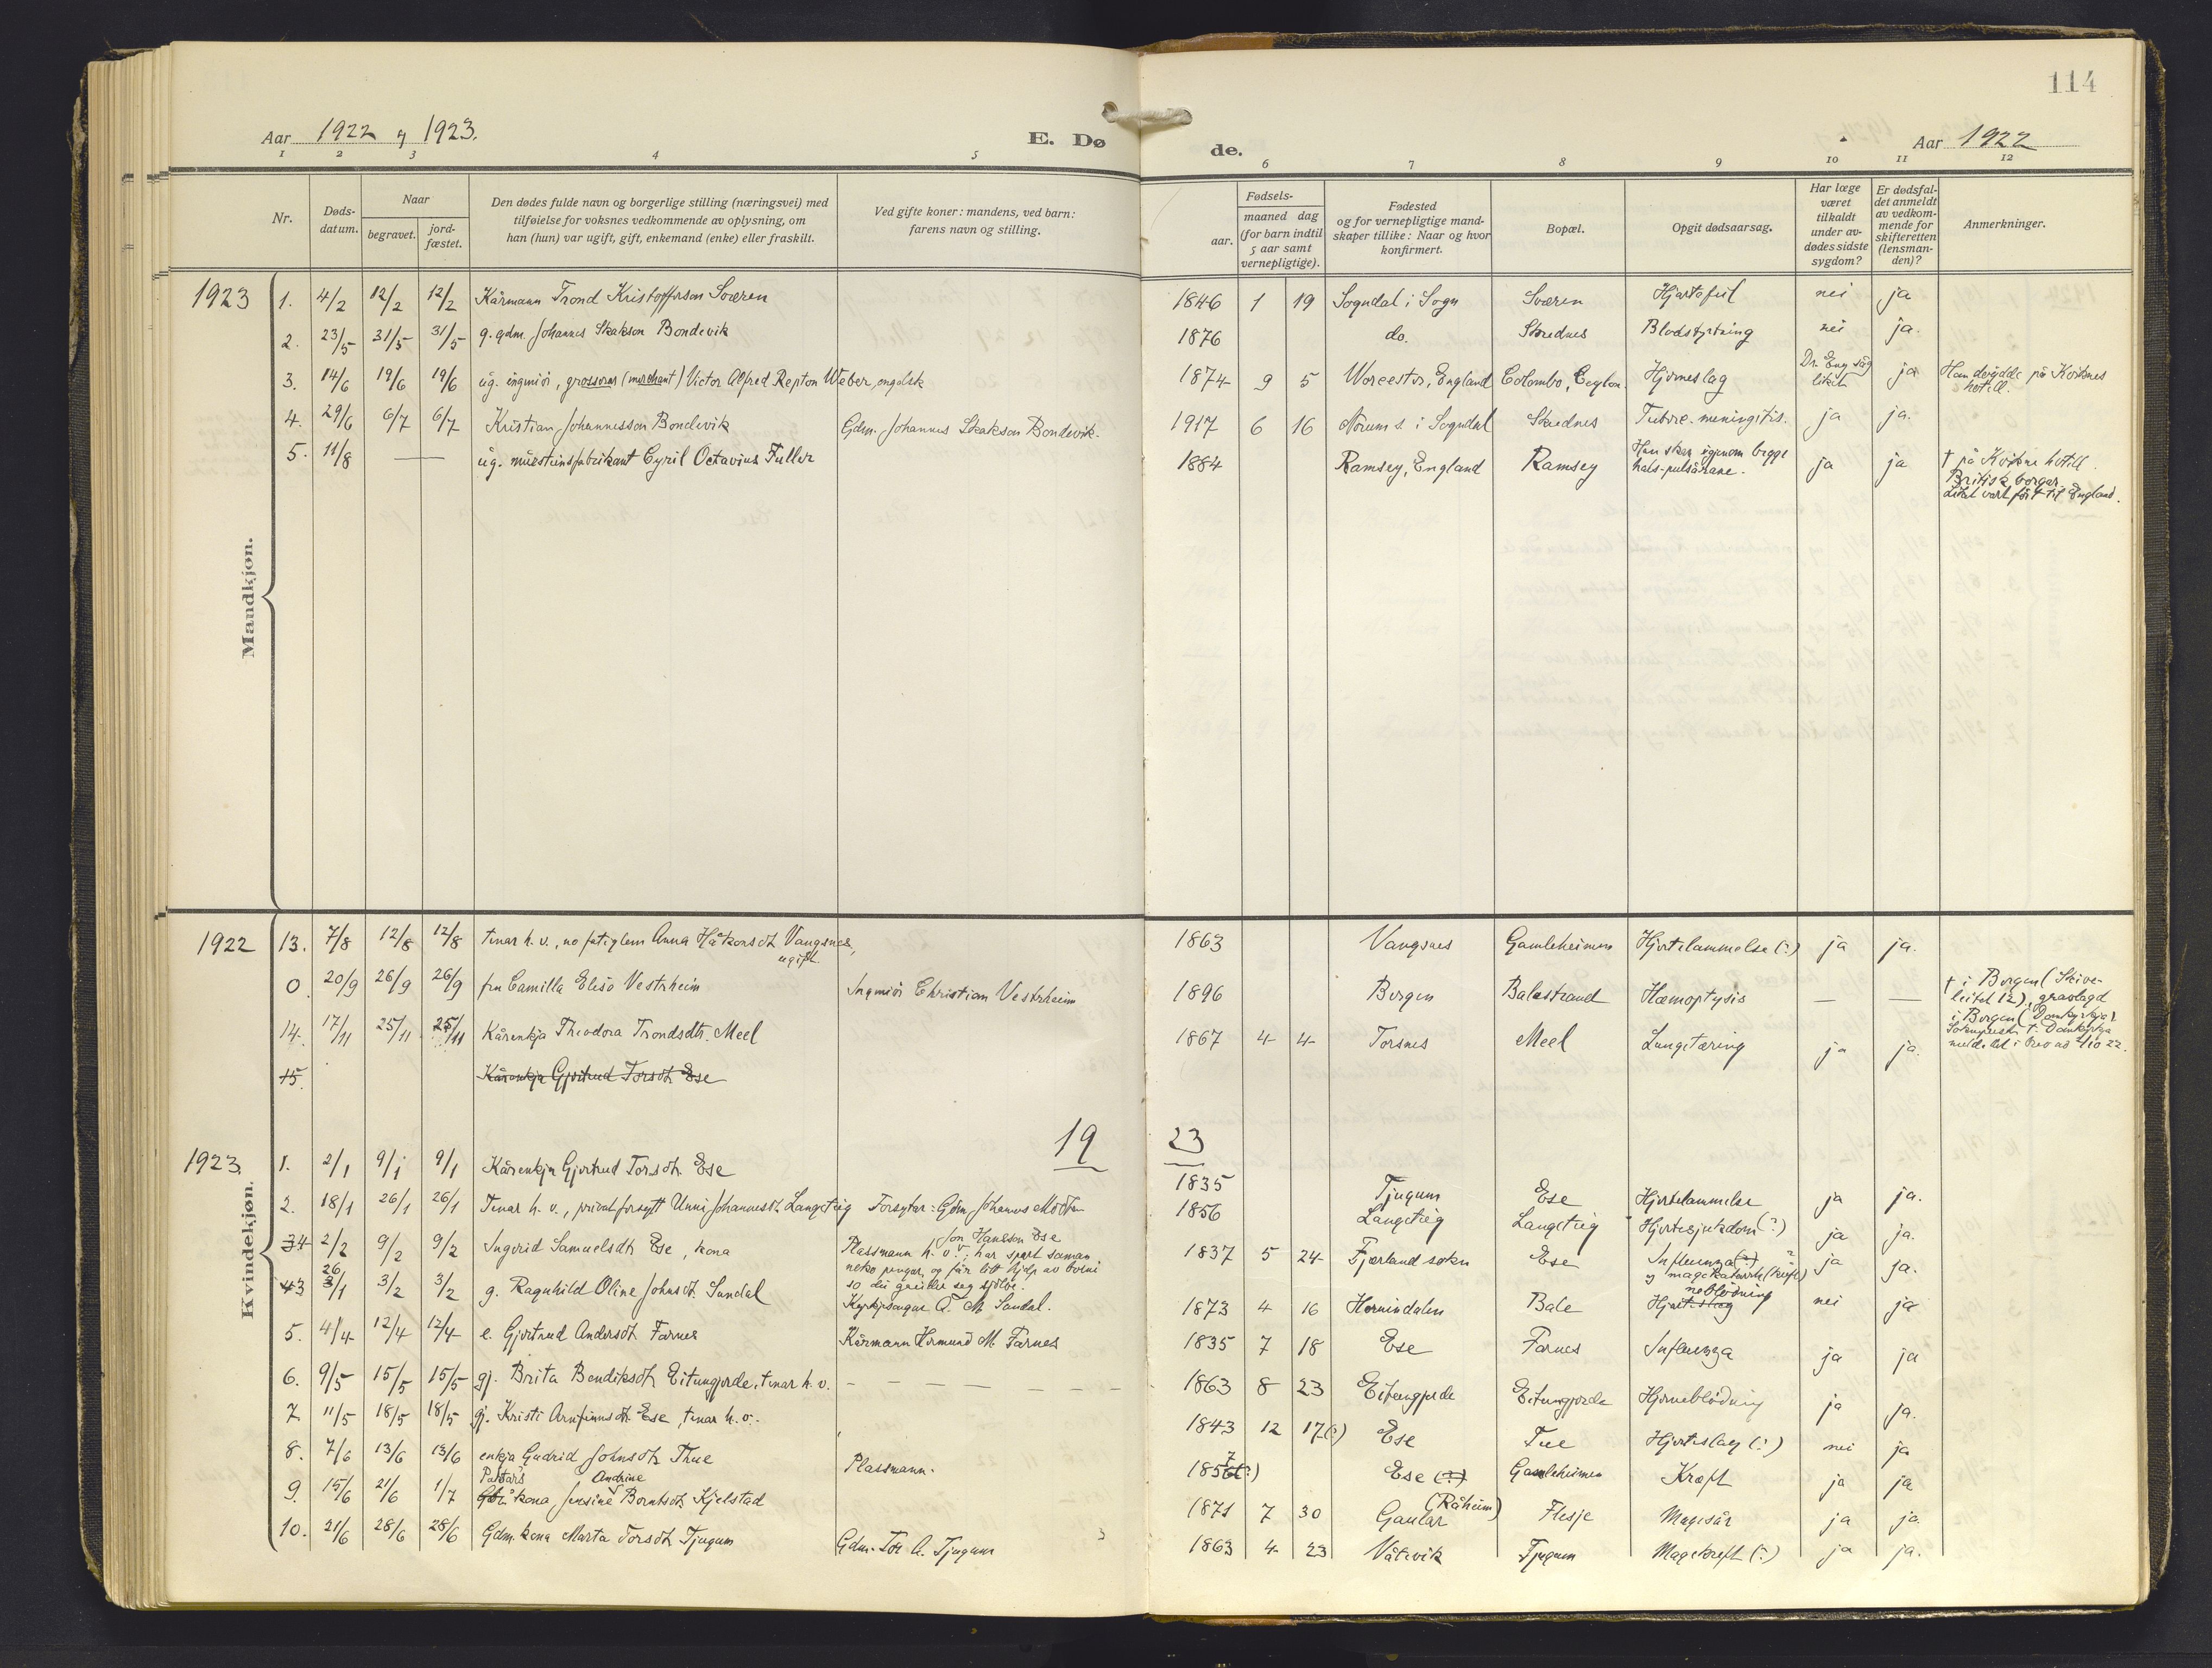 114
Aar 1922 og 1923.
E. Dø
de.
Aar 1922
1 2 3 4 5 6 7 8 9 10 11 12
Nr.
Døds-
datum.
Naar
begravet.
jord-
fæstet.
Den dødes fulde navn og borgerlige stilling (næringsvei) med
tilføielse for voksnes vedkommende av oplysning, om
han (hun) var ugift, gift, enkemand (enke) eller fraskilt.
Ved gifte koner: mandens, ved barn:
farens navn og stilling.
Fødsels-
aar.
maaned dag
(for barn indtil
5 aar samt
vernepligtige).
Fødested
og for vernepligtige mand-
skaper tillike: Naar og hvor
konfirmert.
Bopæl.
Opgit dødsaarsag.
Har læge
været
tilkaldt
under av-
dødes sidste
sygdom?
Er dødsfal-
det anmeldt
av vedkom-
mende for
skifteretten
(lensman-
den)?
Anmerkninger.
Mandkjøn.
1923 1. 4/2 12/2 12/2 Kårmann Trond Kristofferson Sværen 1846 1 19 Sogndal i Sogn Sværen Hjartefeil nei ja
2. 23/5 31/5 31/5 g. gdm. Johannes Skakson Bondevik 1876 do. Skrednes Blodstyrtning nei ja.
3. 14/6 19/6 19/6 ug. ingeniør, grosserer (merchant) Victor Alfred Repton Weber, engelsk 1874 9 5 Worcester, England Colombo, Ceylon. Hjerneslag Dr. Eng såg liket ja Han døydde på Kviknes hotell.
4. 29/6 6/7 6/7 Kristian Johannesson Bondevik Gdm. Johannes Skakson Bondevik. 1917 6 16 Norum s. i Sogndal Skrednes Tuberc. meningitis. ja ja.
5. 11/8 — ug. murstensfabrikant Cyril Octavius Fuller 1884 Ramsey, England Ramsey Han skar igjenom begge hals-pulsårane. ja ja † på Kvikne hotell. Britisk borgar. Liket vart ført til England.
Kvindekjøn.
1922 13. 7/8 12/8 12/8 tenar h. v., no fatiglem Anna Håkonsdt. Vangsnes, ugift. 1863 Vangsnes Gamleheimen Hjertelammelse (?) ja ja.
0. 20/9 26/9 26/9 fru Camilla Elisa Vestrheim Ingeniør Christian Vestrheim 1896 Bergen Balestrand Hæmoptysis — — † i Bergen (Skive-
leitet 12), gravlagd
i Bergen (Domkyrkja).
Soknepresten t. Domkyrkja
melde det i brev 4/10 22.
14. 17/11 25/11 25/11 Kårenkja Theodora Trondsdtr. Meel 1867 4 4 Torsnes Meel Lungetæring ja ja.
15. Kårenkja Gjertrud Torsdt. Ese
19 23
1923. 1. 2/1 9/1 9/1 Kårenkja Gjertrud Torsdt. Ese 1835 Tjugum Ese Hjertelammelse ja ja.
2. 18/1 26/1 26/1 Tenar h. v., privat forsytt Unni Johannesdt. Langeteig Forsytar: Gdm. Johannes 1856 Langeteig Langeteig Hjertesjukdom (?) ja ja.
34 2/2 9/2 9/2 Ingerid Samuelsdt. Ese, kona Plassmann h. v. Jon Hansson Ese; har spart saman
noko pengar, og får litt hjelp av borni
so dei greidde seg sjølve. 1837 5 24 Fjærland sokn Ese Influenza (?) og magekatarrh (kreft) ? ja ja.
43 26/1 3/2 3/2 g. Ragnhild Oline Johnsdt. Sandal Kyrkjesongar A. M. Sandal. 1873 4 16 Hornindalen Bale Hjerteslag neblödning nei ja
5. 4/4 12/4 12/4 e. Gjertrud Andersdt. Farnes Kårmann Hermund M. Farnes 1835 7 18 Ese Farnes Influenza ja ja
6. 9/5 15/5 15/5 gj. Brita Bendiksdt. Eitungjerde, tenar h. v. — — — 1863 8 23 Eitungjerde Eitungjerde Hjerneblödning ja ja.
7. 11/5 18/5 18/5 gj. Kristi Arnfinnsdt. Ese, tenar h. v. 1843 12 17 (?) Ese Tue Hjerteslag (?) nei ja
8. 7/6 13/6 13/6 enkja Gudrid Johnsdt. Thue Plassmann. 1857 (?) Ese (?) Gamleheimen Kræft ja ja
9. 15/6 21/6 1/7 kona Jensine Andrine Berntsdt. Kjelstad 1871 7 30 Gaular (Råheim) Flesje Magesår ja ja.
10. 21/6 28/6 28/6 Gdm. kona Marta Torsdt. Tjugum Gdm. Tor A. Tjugum 1863 4 23 Våtevik Tjugum Magekreft (?) ja ja.